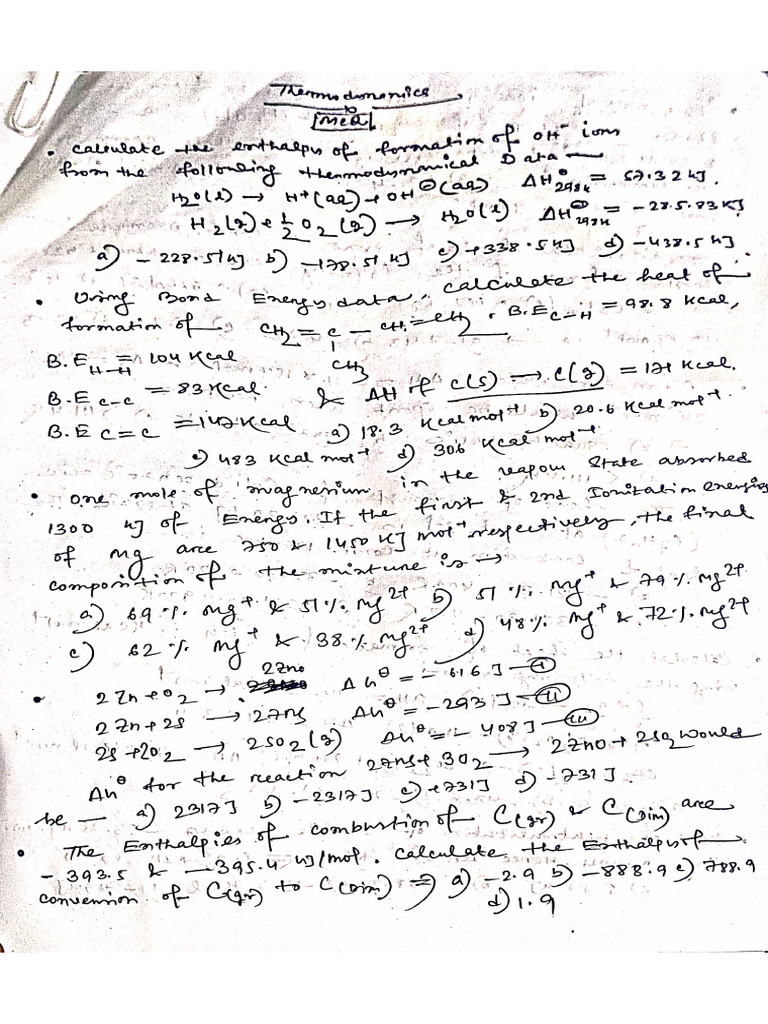 Thermodynamics
MCQ
• Calculate the enthalpy of formation of OH⁻ ions
from the following thermodynamical Data —
H₂O(l) → H⁺(aq) + OH⊖(aq) ΔH°298K = 57.32 kJ.
H₂(g) + ½O₂(g) → H₂O(l) ΔH⊖298K = -285.83 KJ
a) -228.51 kJ b) -178.51 kJ c) +338.5 kJ d) -438.5 kJ
• Using Bond Energy data. calculate the heat of
formation of CH₂ = C - CH = CH₂. B.E C-H = 98.8 Kcal,
CH₃
B.E H-H = 104 Kcal
B.E C-C = 83 Kcal & ΔH of C(s) → C(g) = 171 Kcal.
B.E C=C = 147 Kcal a) 18.3 Kcal mol⁻¹ b) 20.6 Kcal mol⁻¹.
c) 483 Kcal mol⁻¹ d) 306 Kcal mol⁻¹.
• One mole of magnesium in the vapour State absorbed
1300 kJ of Energy. If the first & 2nd Ionization energies
of Mg are 750 & 1450 KJ mol⁻¹ respectively, the final
composition of the mixture is →
a) 69% Mg⁺ & 51% Mg²⁺ b) 51% Mg⁺ & 79% Mg²⁺
c) 62% Mg⁺ & 38% Mg²⁺ d) 48% Mg⁺ & 72% Mg²⁺
• 2Zn + O₂ → 2ZnO ΔH⊖ = -616 J — (I)
2Zn + 2S → 2ZnS ΔH⊖ = -293 J — (II)
2S + 2O₂ → 2SO₂(g) ΔH⊖ = -408 J — (III)
ΔH⊖ for the reaction 2ZnS + 3O₂ → 2ZnO + 2SO₂ would
be — a) 2317 J b) -2317 J c) +731 J d) -731 J.
• The Enthalpies of combustion of C(gr) & C(dim) are
-393.5 & -395.4 kJ/mol. Calculate the Enthalpy of
conversion of C(gr) to C(dim) ⇒ a) -2.9 b) -888.9 c) 788.9
d) 1.9